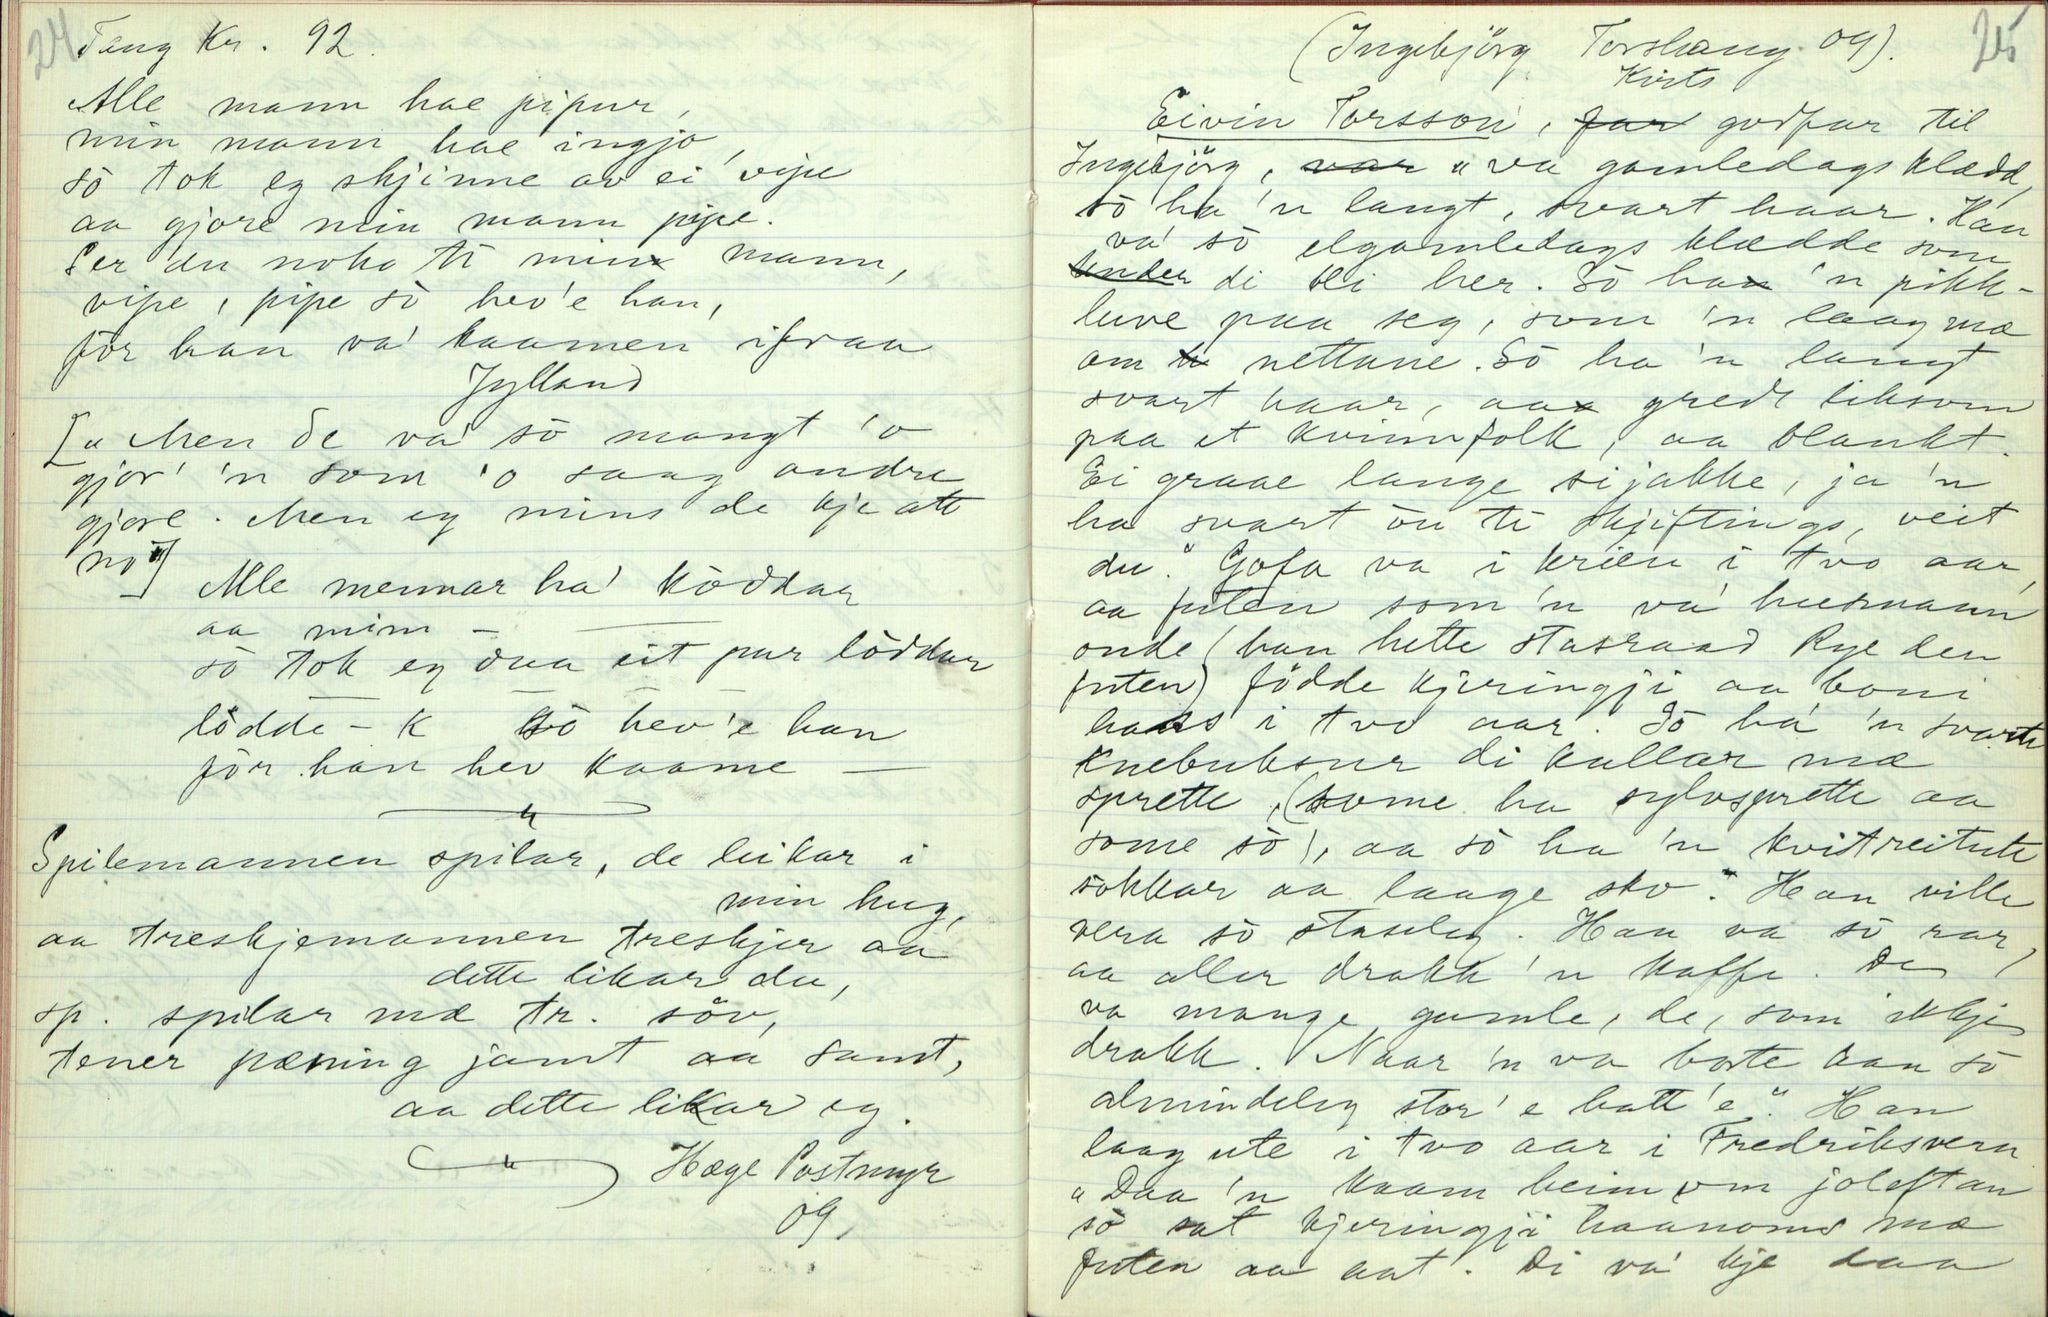 24
Tang Kr. 92.
Alle mann hae pipur,
min mann hae ingjo,
sò tok eg skjinne av ei vipe
aa gjore min mann pipe.
Ser du noko ti min mann,
vipe, pipe sò hev'e han,
fòr han va' kaamen ifraa
Jylland
[„Men de va' sò mangt 'o
gjor' 'n som 'o saag andre
gjore. Men eg mins de kje att
no"]
Alle mennar ha' köddar
aa min –
sò tok eg daa eit par löddar
lödde – k sò hev'e han
fòr han hev kaame —
Spilemannen spilar, de leikar i
min hug,
aa treskjemannen treskjer aa
dette likar du,
sp. spilar mæ tr. söv,
tener pæning jamt aa samt,
aa dette likar eg.
Hæge Postmyr
09.
25
(Ingebjörg Torshaug 09).
Kvits
Eivin Torsson, far godfar til
Ingebjörg, var „va gamledags klædd,
sò ha 'n langt, svart haar. Han
va' sò elgamledags klædde som
di bli her. Sò ha 'n pikk-
luve paa seg, som 'n laag mæ
om nettane. Sò ha 'n langt
svart haar, aa gredt liksom
paa et kvinnfolk, aa blankt.
Ei graae lange sijakke, ja 'n
ha svart òu ti skjiftings, veit
du." Gofa va i kriæn i tvo aar,
aa futen som 'n va' husmann
onde (han hette stasraad Rye den
futen) födde kjeringji aa boni
hans i tvo aar. Sò ha 'n svarte
knebuksur di kallar mæ
sprette, (some ha sylvsprette aa
some sò), aa sò ha 'n kvitreitute
sokkar aa laage sko". Han ville
vera sò staseleg. Han va sò rar,
aa aller drakk 'n kaffe. De
va mange gamle, de, som ikkje
drakk. Naar 'n va borte kan sò
almindeleg stor' e hatt 'e". Han
laag ute i tvo aar i Fredriksvern
„Daa 'n kaam heim om joleftan
sò sat kjeringji haanoms mæ
futen aa aat. Di va' kje daa